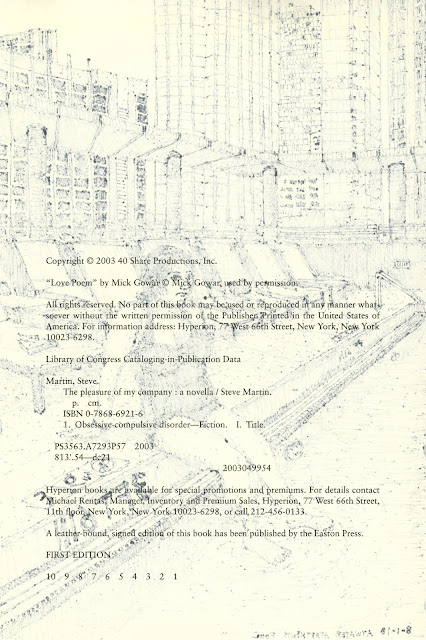 Copyright © 2003 40 Share Productions, Inc.
“Love Poem” by Mick Gowar © Mick Gowar, used by permission.
All rights reserved. No part of this book may be used or reproduced in any manner what-
soever without the written permission of the Publisher. Printed in the United States of
America. For information address: Hyperion, 77 West 66th Street, New York, New York
10023-6298.
Library of Congress Cataloging-in-Publication Data
Martin, Steve.
The pleasure of my company : a novella / Steve Martin.
p. cm.
ISBN 0-7868-6921-6
1. Obsessive-compulsive disorder—Fiction. I. Title.
PS3563.A7293P57 2003
813'.54—dc21
2003049954
Hyperion books are available for special promotions and premiums. For details contact
Michael Rentas, Manager, Inventory and Premium Sales, Hyperion, 77 West 66th Street,
11th floor, New York, New York 10023-6298, or call 212-456-0133.
A leather-bound, signed edition of this book has been published by the Easton Press.
FIRST EDITION
10 9 8 7 6 5 4 3 2 1